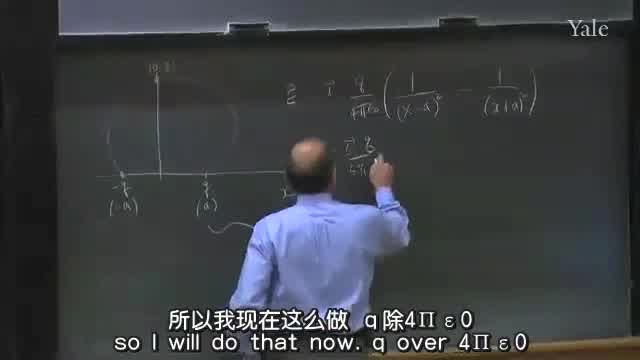 Yale
E i q/4πε0 ( 1/(x-a)² - 1/(x+a)² )
i q
-q q x
(-a) (a)
所以我现在这么做 q除4Πε0
so I will do that now. q over 4Πε0